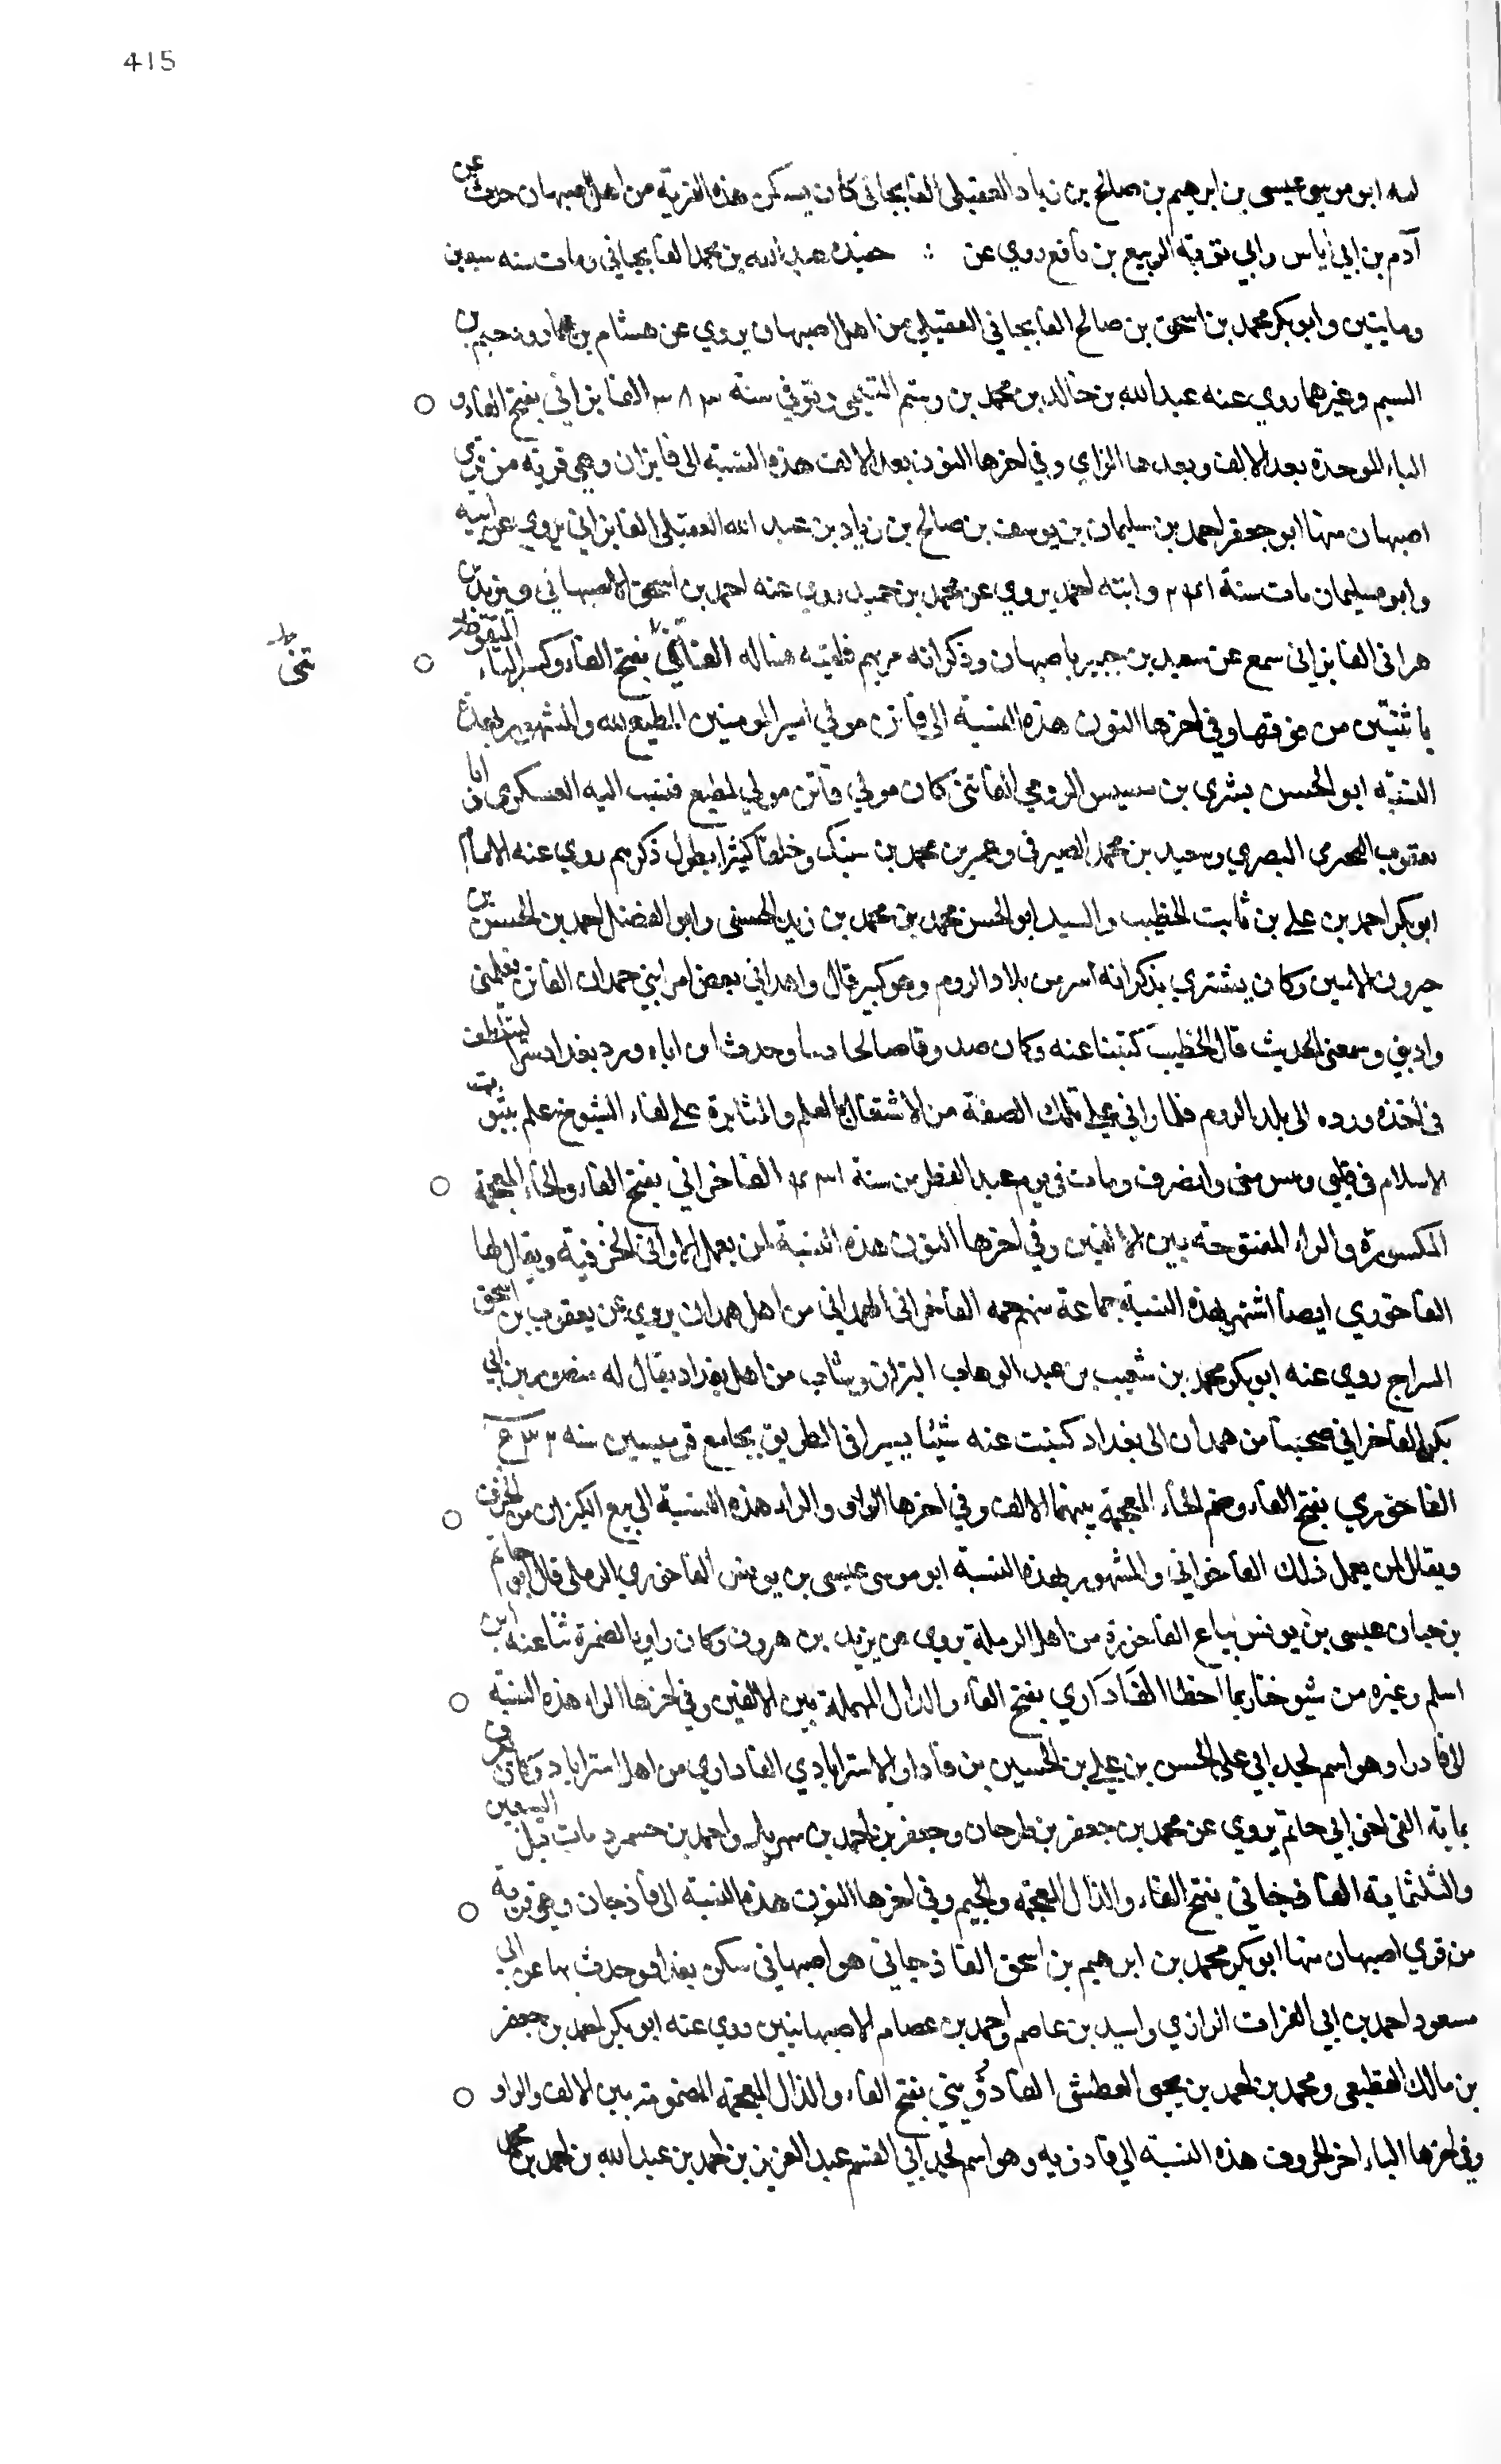 415
له ابو موسى عيسى بن ابرهيم بن صالح بن زياد العقيلى الفابجانى كان يسكن هذه القرية من اهل اصبهان حدث عن
آدم بن ابى اياس وابي توبة الربيع بن نافع روي عن ؞ حفيده عبد الله بن محمد الفابجاني ومات سنه سبعين
ومايتين وابو بكر محمد بن اسحق بن صالح الفابجاني العقيلي من اهل اصبهان يروي عن هشام بن عمار ودحيم بن
اليسيم وغيرهما روي عنه عبد الله بن خالد بن محمد بن رستم التيمي وتوفي سنة ٣٨٣ الفابزاني بفتح الفاء و
الباء الموحدة بعد الالف وبعدها الزاي وفي اخرها النون بعد الالف هذه النسبة الى فابزان وهي قرية من قري
اصبهان منها ابو جعفر احمد بن سليمان بن يوسف بن صالح بن زياد بن عبد الله العقيلى الفابزاني يروي عن ابيه
وابوه سليمان مات سنة وابنه احمد يروي عن محمد بن حميد روي عنه احمد بن اسحق الاصبهاني ويزيد بن
هرانى الفابزانى سمع عن سعيد بن جبير باصبهان وذكر انه مر بهم فلقيه هناله الفاتني بفتح الفاء وكسر التاء المنقوطة
تنى
باثنتين من فوقها وفي اخرها النون هذه النسبة الى فاتن مولي امير المومنين المطيع لله والمشهور بهذه
النسبة ابو الحسن بشرى بن مسيس الرومي الفاتنى كان مولي فاتن مولي المطيع فنسب اليه العسكرى وابا
يعقوب البصري وسعيد بن محمد الصيرفى وعمر بن محمد بن سبنك وخلقا كثيرا يطول ذكرهم روي عنه الامام
ابو بكر احمد بن علي بن ثابت الخطيب والسيد ابو الحسن محمد بن محمد بن زيد الحسنى وابو الفضل احمد بن الحسن بن
خيرون الامين وكان بشري يذكر انه اسر من بلاد الروم وهو كبير قال واهداني بعض امرا بني حمدان لفاتن فعلمنى
وادبني وسمعنى الحديث قال الخطيب كتبنا عنه وكان صدوقا صالحا دينا وحدث ان اباه ورد بغداد سرا ليتلطف
فى اخذه ورده الى بلد الروم فلما راني على تلك الصفة من الاشتغال بالعلم والمثابرة على لقاء الشيوخ علم ثبوت
الاسلام فى قلبي ويس منى وانصرف ومات فى يوم عيد الفطر من سنة ٤٣١ الفاخراني بفتح الفاء والخاء المعجمة
المكسورة والراء المفتوحة بين الالفين وفي اخرها النون هذه النسبة لمن يعمل الاواني الخزفية ويقال لها
الفاخوري ايضا اشتهر بهذه النسبة جماعة منهم حمه الفاخرانى الهمدانى من اهل همدان يروي عن يعقوب بن اسحق
السراج روي عنه ابو بكر محمد بن شعيب بن عبد الوهاب البزاز وشاب من اهل بغداد يقال له منصور بن ابي
بكر الفاخراني صحبنا من همدان الى بغداد كتبت عنه شيئا يسيرا فى الطريق بجامع قرميسين سنه
الفاخوري بفتح الفاء وضم الخاء المعجمة بينهما الالف وفي اخرها الواو والراء هذه النسبة الي بيع الكيزان من الخزف
ويقال لمن يعمل ذلك الفاخراني والمشهور بهذه النسبة ابو موسى عيسى بن يونس الفاخوري الرملى قال ابو حاتم
بن حبان عيسى بن يونس بياع الفاخورة من اهل الرملة يروي عن يزيد بن هرون وكان راويا لضمرة ثنا عنه ابن
اسلم وغيره من شيوخنا ربما اخطا الفاداري بفتح الفاء والدال المهملة بين الالفين وفي اخرها الراء هذه النسبة
الى فادار وهو اسم لجد ابي علي الحسن بن علي بن الحسين بن فادار الاستراباذي الفاداري من اهل استراباد وكان يعرف
بماية الفى اخي ابي حاتم يروي عن محمد بن جعفر بن طرخان وجعفر بن احمد بن شهريل واحمد بن حسمرد مات قبل السبعين
والثلثماية الفاذجاني بفتح الفاء والذال المعجمة والجيم وفي اخرها النون هذه النسبة الى فاذجان وهي قرية
من قري اصبهان منها ابو بكر محمد بن ابرهيم بن اسحق الفاذجاني هو اصبهاني سكن بغداد وحدث بها عن ابي
مسعود احمد بن ابى الفرات الرازي واسيد بن عاصم واحمد بن عصام الاصبهانيين روي عنه ابو بكر احمد بن جعفر
بن مالك القطيعى ومحمد بن احمد بن يحيى العطشى الفاذويي بفتح الفاء والذال المعجمة المضمومة بين الالف والواو
وفي اخرها الياء اخر الحروف هذه النسبة الي فاذويه وهو اسم لجد ابي القسم عبد العزيز بن احمد بن عبد الله بن احمد بن محمد